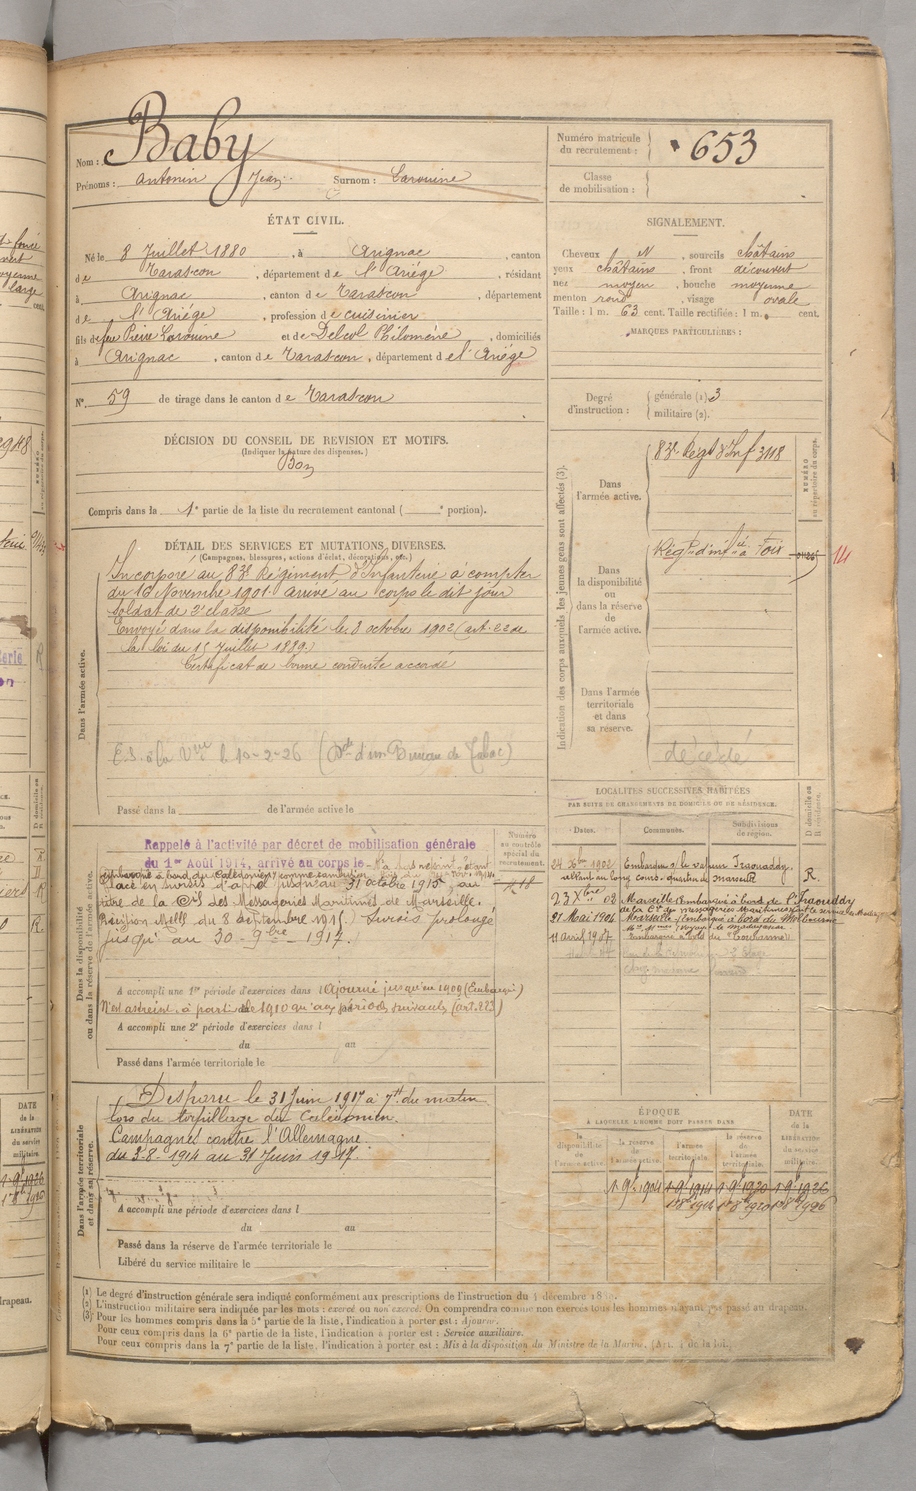 Nom : Baby
Prénoms : Antonin Jean Surnom : Larouine
Numéro matricule du recrutement : 653
Classe de mobilisation :
ÉTAT CIVIL.
Né le 8 Juillet 1880, à Arignac, canton
de Tarascon, département de l'Ariége, résidant
à Arignac, canton de Tarascon, département
de l'Ariége, profession de cuisinier
fils de feu Pierre Larouine et de Delcol Philomène, domiciliés
à Arignac, canton de Tarascon, département de l'Ariége
N° 59 de tirage dans le canton de Tarascon
SIGNALEMENT.
Cheveux N, sourcils châtains
yeux châtains, front découvert
nez moyen, bouche moyenne
menton rond, visage ovale
Taille : 1 m. 63 cent. Taille rectifiée : 1 m. cent.
MARQUES PARTICULIÈRES :
Degré d'instruction :
générale (1). 3
militaire (2).
DÉCISION DU CONSEIL DE REVISION ET MOTIFS.
(Indiquer la nature des dispenses.)
Bon
Compris dans la 1e partie de la liste du recrutement cantonal ( e portion).
DÉTAIL DES SERVICES ET MUTATIONS DIVERSES.
(Campagnes, blessures, actions d'éclat, décorations, etc.)
Dans l'armée active.
Incorporé au 83e Régiment d'Infanterie à compter
du 16 Novembre 1901. arrivé au corps le dit jour
soldat de 2e classe
Envoyé dans la disponibilité le 8 octobre 1902 (art. 22 de
la loi du 15 Juillet 1889.)
Certificat de bonne conduite accordé
10-2-26 (d'un Bureau de Tabac)
Passé dans la de l'armée active le
Indication des corps auxquels les jeunes gens sont affectés (3).
NUMÉRO au répertoire du corps.
Dans l'armée active.
83e Régt d'Inf 3118
Dans la disponibilité ou dans la réserve de l'armée active.
Régt d'infie à Foix
14
Dans l'armée territoriale et dans sa réserve.
décédé
LOCALITÉS SUCCESSIVES HABITÉES
PAR SUITE DE CHANGEMENTS DE DOMICILE OU DE RÉSIDENCE.
Dates. Communes. Subdivisions de région. D domicile ou R résidence.
Embarqué s/ le vapeur Iraouaddy
R.
23 Xbre 02 Marseille Embarqué à bord de l'Iraouaddy
de la Cie des messageries Maritimes
21 Mai 1904 Marseille
11 avril 1907
Dans la disponibilité ou dans la réserve de l'armée active.
Numéro au contrôle spécial du recrutement.
Rappelé à l'activité par décret de mobilisation générale
du 1er Août 1914, arrivé au corps le
embarqué à bord du Calédonien
Placé en sursis d'appel jusqu'au 31 octobre 1915, au
titre de la Cie des Messageries Maritimes de Marseille.
(Décision Mlle du 8 septembre 1915) Sursis prolongé
jusqu'au 30-9bre-1917.
A accompli une 1re période d'exercices dans l Ajourné jusqu'en 1909 (Embarqué)
N'est astreint, à partir de 1910 qu'aux périodes suivants (art. 223)
A accompli une 2e période d'exercices dans l
du au
Passé dans l'armée territoriale le
Dans l'armée territoriale et dans sa réserve.
Disparu le 31 Juin 1917 à 7h du matin
lors du torpillage du Calédonien.
Campagne contre l'Allemagne
du 3-8-1914 au 31 Juin 1917.
A accompli une période d'exercices dans l
du au
Passé dans la réserve de l'armée territoriale le
Libéré du service militaire le
ÉPOQUE
À LAQUELLE L'HOMME DOIT PASSER DANS
la disponibilité de l'armée active. la réserve de l'armée active. l'armée territoriale. la réserve de l'armée territoriale. DATE de la LIBÉRATION du service militaire.
(1) Le degré d'instruction générale sera indiqué conformément aux prescriptions de l'instruction du 4 décembre
(2) L'instruction militaire sera indiquée par les mots : exercé ou non exercé. On comprendra comme non exercés tous les hommes n'ayant pas passé au drapeau.
(3) Pour les hommes compris dans la 5e partie de la liste, l'indication à porter est : Ajourné.
Pour ceux compris dans la 6e partie de la liste, l'indication à porter est : Service auxiliaire.
Pour ceux compris dans la 7e partie de la liste, l'indication à porter est : Mis à la disposition du Ministre de la Marine. (Art. 4 de la loi.)